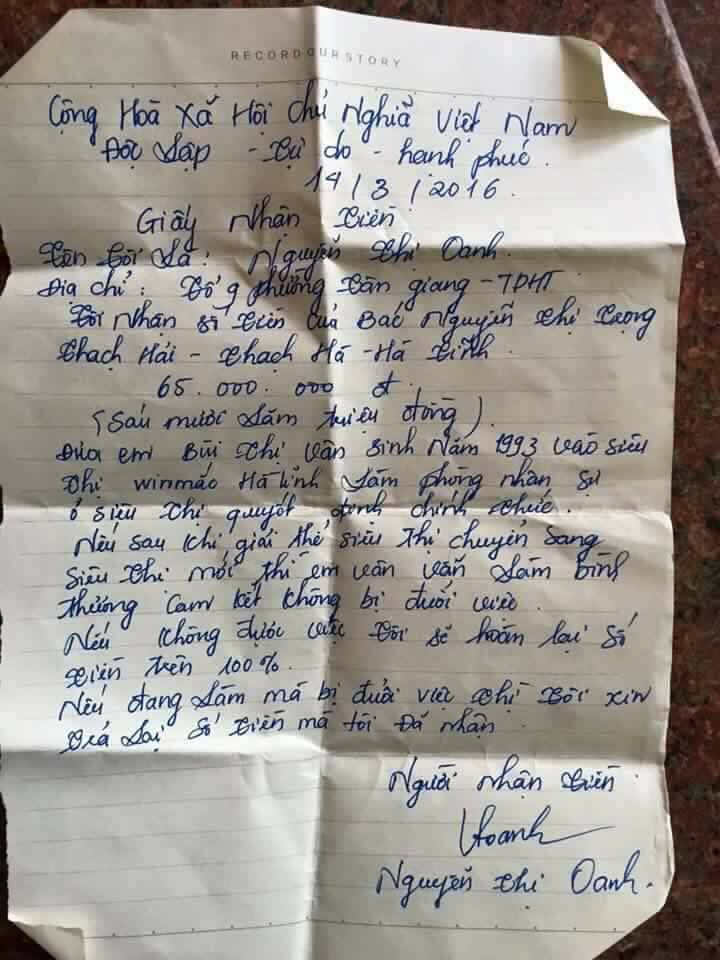 RECORD OUR STORY
Cộng Hoà Xã Hội Chủ Nghĩa Việt Nam
Độc Lập - Tự do - hạnh phúc.
14/3/2016.
Giấy Nhận Tiền
Tên Tôi Là: Nguyễn Thị Oanh.
Địa chỉ: Tổ 9 phường Tân giang - TPHT
Tôi Nhận số Tiền của Bác Nguyễn Thị Trọng
Thạch Hải - Thạch Hà - Hà Tĩnh.
65.000.000 đ
(Sáu mươi Lăm triệu đồng).
Đưa em Bùi Thị Vân sinh Năm 1993 vào siêu
Thị winmác Hà tĩnh Làm phòng nhân sự
ở siêu Thị quyết định chính thức.
Nếu sau khi giải thể siêu thị chuyển sang
siêu thi mới thì em vân vẫn Làm bình
thường Cam kết không bị đuổi việc.
Nếu không được việc Tôi sẽ hoàn lại số
Tiền trên 100%.
Nếu đang Làm mà bị đuổi việc Thì Tôi xin
Trả Lại số Tiền mà tôi Đã nhận
Người nhận Tiền.
Hoanh
Nguyễn Thị Oanh.